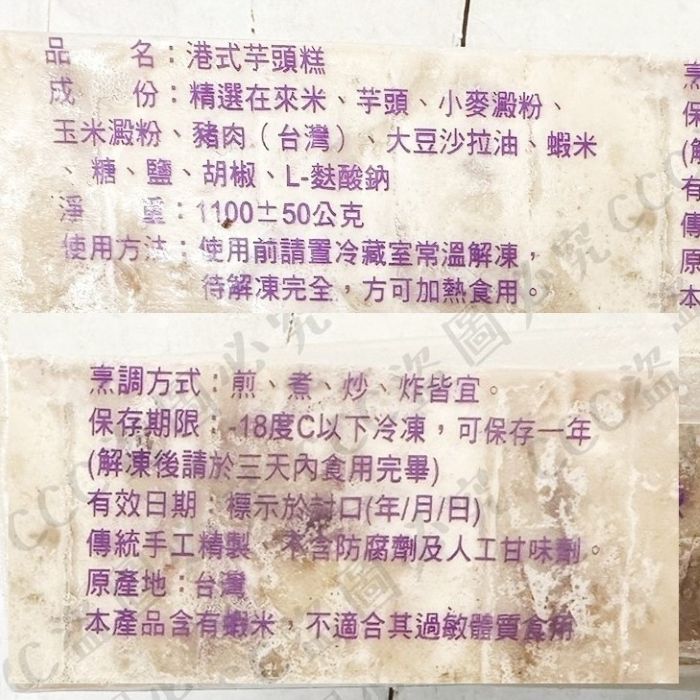 品　　名：港式芋頭糕
成　　份：精選在來米、芋頭、小麥澱粉、
玉米澱粉、豬肉（台灣）、大豆沙拉油、蝦米
、糖、鹽、胡椒、L-麩酸鈉
淨　　量：1100±50公克
使用方法：使用前請置冷藏室常溫解凍，
待解凍完全，方可加熱食用。
烹調方式：煎、煮、炒、炸皆宜。
保存期限：-18度C以下冷凍，可保存一年
(解凍後請於三天內食用完畢)
有效日期：標示於封口(年/月/日)
傳統手工精製　不含防腐劑及人工甘味劑。
原產地：台灣
本產品含有蝦米，不適合其過敏體質食用
烹
保
(解
有
傳
原
本
CCC盜圖必究